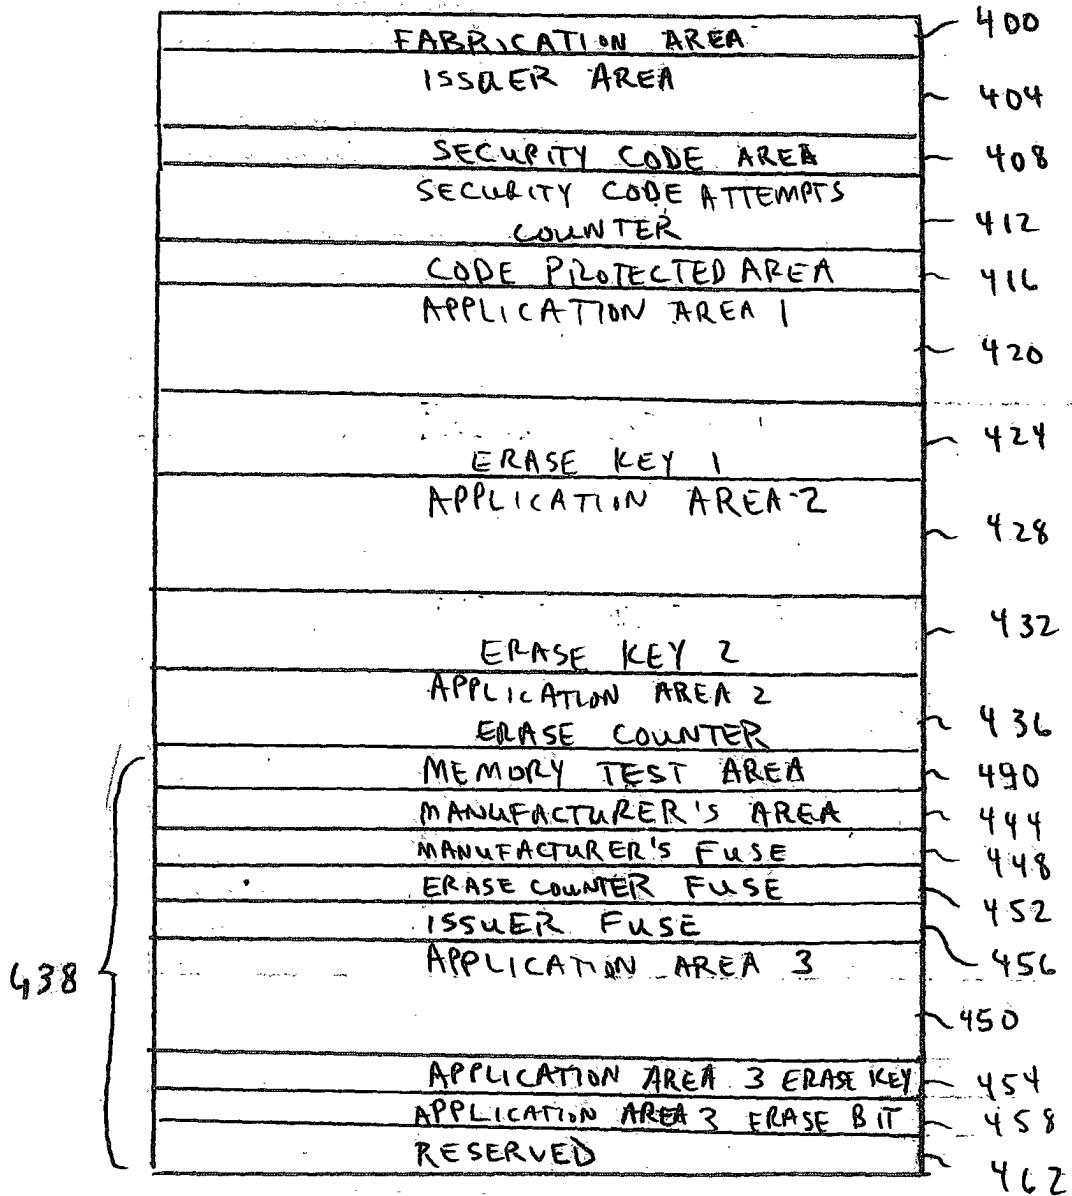 FABRICATION AREA 400
ISSUER AREA
404
SECURITY CODE AREA 408
SECURITY CODE ATTEMPTS
COUNTER 412
CODE PROTECTED AREA 416
APPLICATION AREA 1
420
424
ERASE KEY 1
APPLICATION AREA-2
428
432
ERASE KEY 2
APPLICATION AREA 2
436
ERASE COUNTER
MEMORY TEST AREA 490
MANUFACTURER'S AREA 444
MANUFACTURER'S FUSE 448
ERASE COUNTER FUSE 452
ISSUER FUSE
APPLICATION AREA 3 456
438
450
APPLICATION AREA 3 ERASE KEY 454
APPLICATION AREA 3 ERASE BIT 458
RESERVED 462